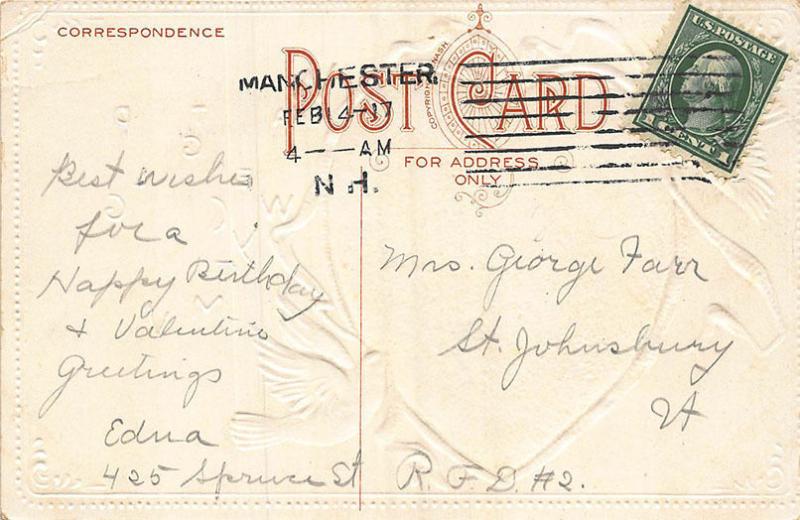 CORRESPONDENCE
POST CARD
COPYRIGHT NASH
FOR ADDRESS
ONLY
MANCHESTER,
FEB 14-17
4 — AM
N.H.
U.S. POSTAGE
1 CENT 1
Best wishes
for a
Happy Birthday
& Valentine
Greetings
Edna
425 Spruce St
Mrs. George Farr
St. Johnsbury
Vt
R.F.D. #2.